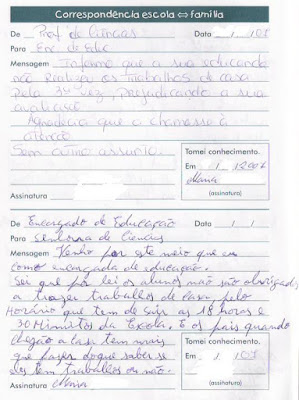 Correspondência escola ⇔ família
De Prof. de Ciências Data / 1 / 07
Para Enc. de Educ
Mensagem Informo que a sua educanda
não realizou os trabalhos de casa
pela 3ª vez, prejudicando a sua
avaliação.
Agradecia que a chamasse à
atenção
Sem outro assunto.
Tomei conhecimento.
Em / 1 / 2007
Maria
Assinatura
(assinatura)
De Encargado de Educação Data / /
Para Senhora de Ciencias
Mensagem Venho por este meio que eu
como encargada de educação.
Ser que por lei os alunos não são obrigados
a trazer trabalhos de casa pelo
Horário que tem de sair as 18 horas e
30 Minutos da Escola. E os pais quando
chegão a casa tem mais
que fazer do que saber se
eles tem trabalhos ou não.
Tomei conhecimento.
Em / 1 / 07
Assinatura Maria
(assinatura)